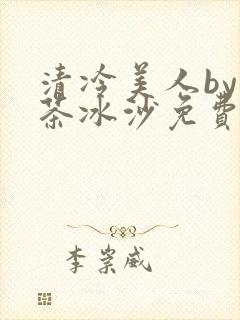 清冷美人by
茶冰沙免費
李崇威